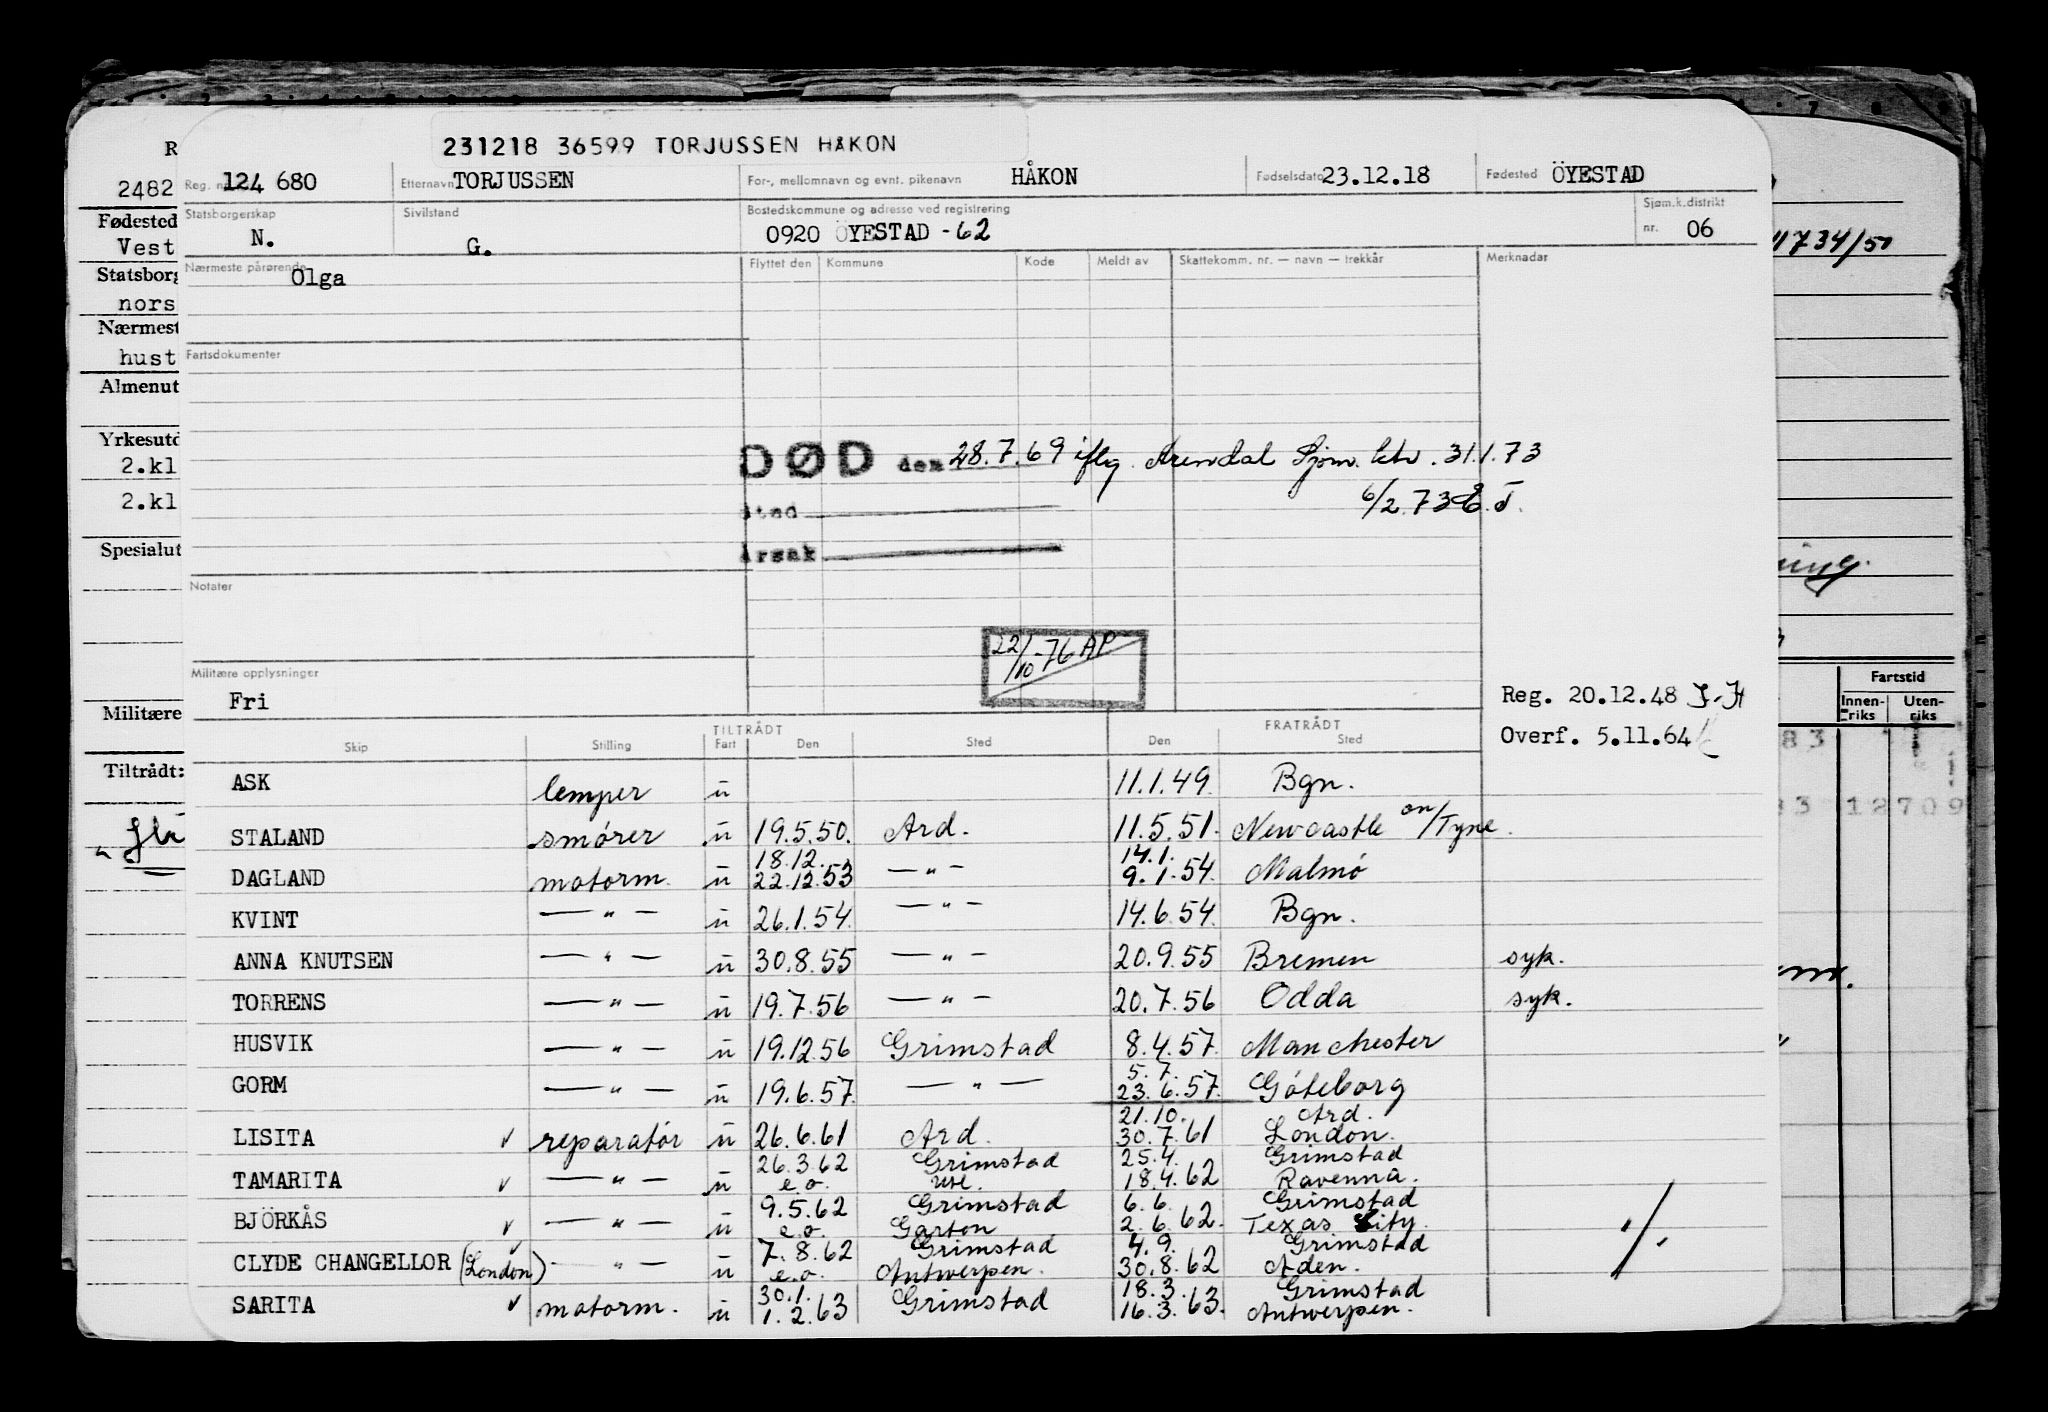 231218 36599 TORJUSSEN HÅKON
R
2482
Reg. nr. 124 680 Etternavn TORJUSSEN For-, mellomnavn og evnt. pikenavn HÅKON Fødselsdato 23.12.18 Fødested ÖYESTAD
Fødested Statsborgerskap Sivilstand Bostedskommune og adresse ved registrering Sjøm.k.distrikt
Vest N. G. 0920 ÖYESTAD -62 nr. 06
11734/50
Statsborg Nærmeste pårørende Olga Flyttet den Kommune Kode Meldt av Skattekomm. nr. — navn — trekkår Merknader
nors
Nærmest
hust Fartsdokumenter
Almenut
Yrkesutd
2.kl DØD den 28.7.69 iflg. Arendal Sjøm. ktr. 31.1.73
2.kl 6/2.73 E.T.
sted
Spesialut årsak
Notater
22/10-76 AP
Militære opplysninger Fartstid
Fri Reg. 20.12.48 Innen-riks Uten-riks
Militære
TILTRÅDT FRATRÅDT Overf. 5.11.64
Skip Stilling Fart Den Sted Den Sted
Tiltrådt:
ASK lemper u 11.1.49. Bgn.
12709
STALAND smører u 19.5.50. Ard. 11.5.51. Newcastle on/Tyne.
18.12. 14.1.
DAGLAND motorm. u 22.12.53 — " — 9.1.54. Malmø
KVINT — " — u 26.1.54. — " — 14.6.54. Bgn.
ANNA KNUTSEN — " — u 30.8.55 — " — 20.9.55 Bremen syk.
TORRENS — " — u 19.7.56 — " — 20.7.56 Odda syk.
HUSVIK — " — u 19.12.56 Grimstad 8.4.57. Manchester
5.7.
GORM — " — u 19.6.57. — " — 23.6.57. Göteborg
21.10. Ard.
LISITA ✓ reparatør u 26.6.61 Ard. 30.7.61 London.
26.3.62 Grimstad 25.4. Grimstad
TAMARITA ✓ — " — u e.o. 18.4.62 Ravenna.
9.5.62 Grimstad 6.6. Grimstad
BJÖRKÅS ✓ — " — u e.o. Garton 2.6.62. Texas City.
7.8.62 Grimstad 4.9. Grimstad
CLYDE CHANGELLOR (London) ✓ — " — u e.o. Antwerpen. 30.8.62 Aden.
30.1. 18.3. Grimstad
SARITA ✓ motorm. u 1.2.63 Grimstad 16.3.63. Antwerpen.